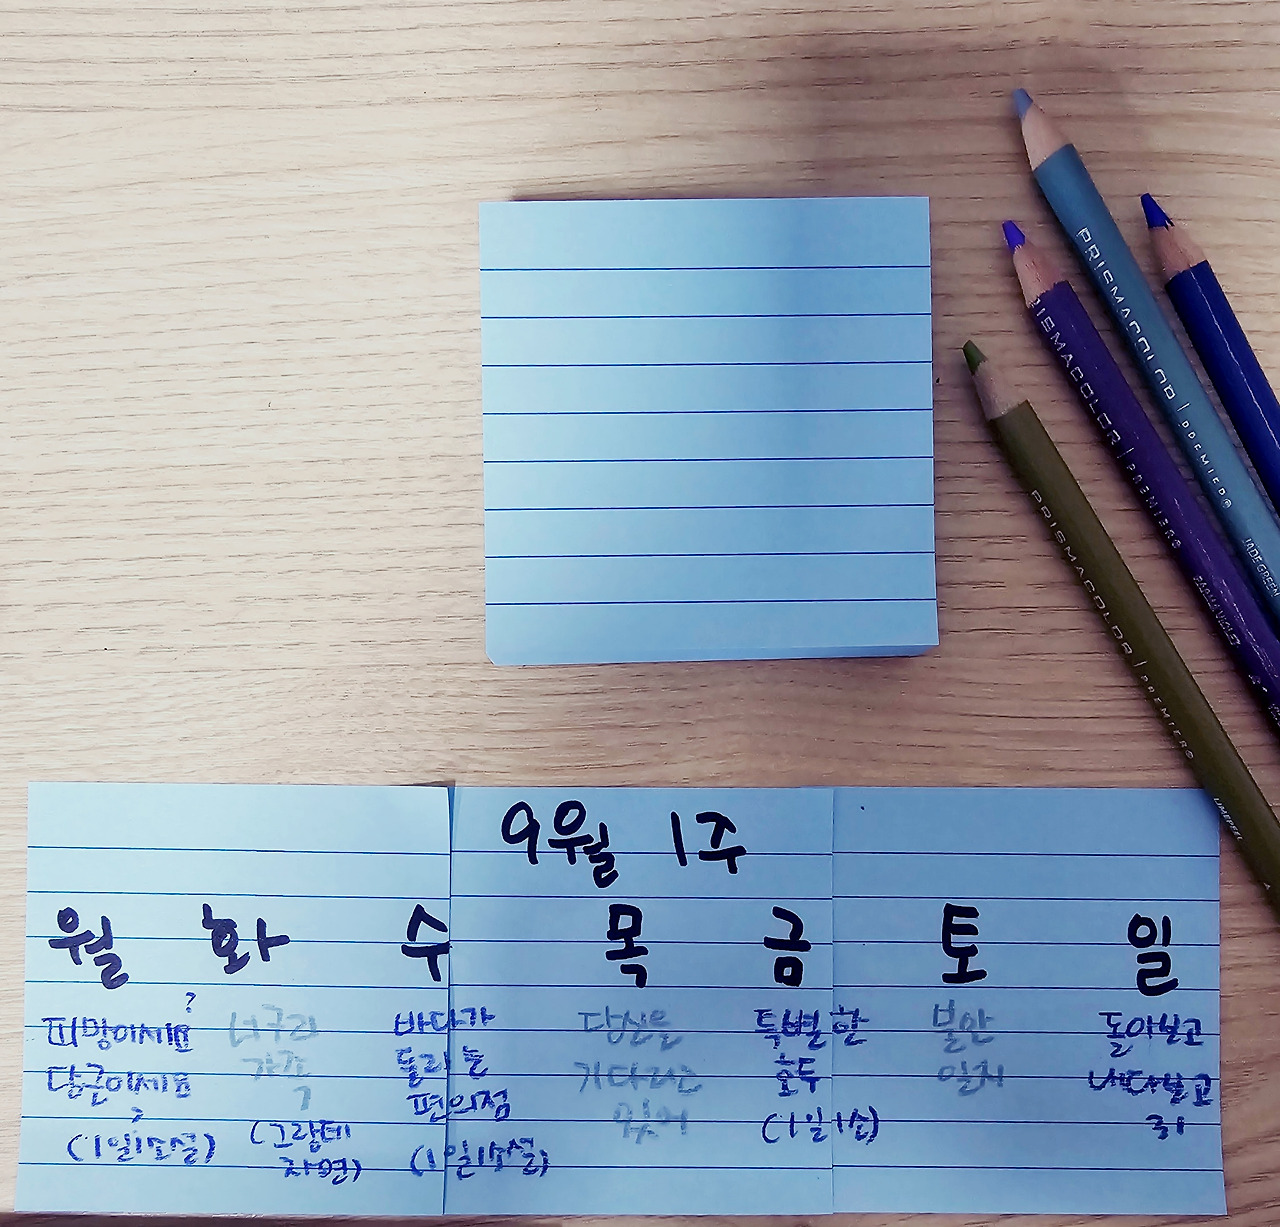 PRISMACOLOR | PREMIER®
JADE GREEN
PRISMACOLOR | PREMIER®
PRISMACOLOR | PREMIER®
9월 1주
월 화 수 목 금 토 일
피망이세요? 너구리 바다가 당신을 특별한 불안 돌아보고
당근이세요? 가족 들리는 기다리고 호두 일지 내다보고
편의점 있어
(1일1소설) (그랑데 (1일1소설) (1일1소)
자연)